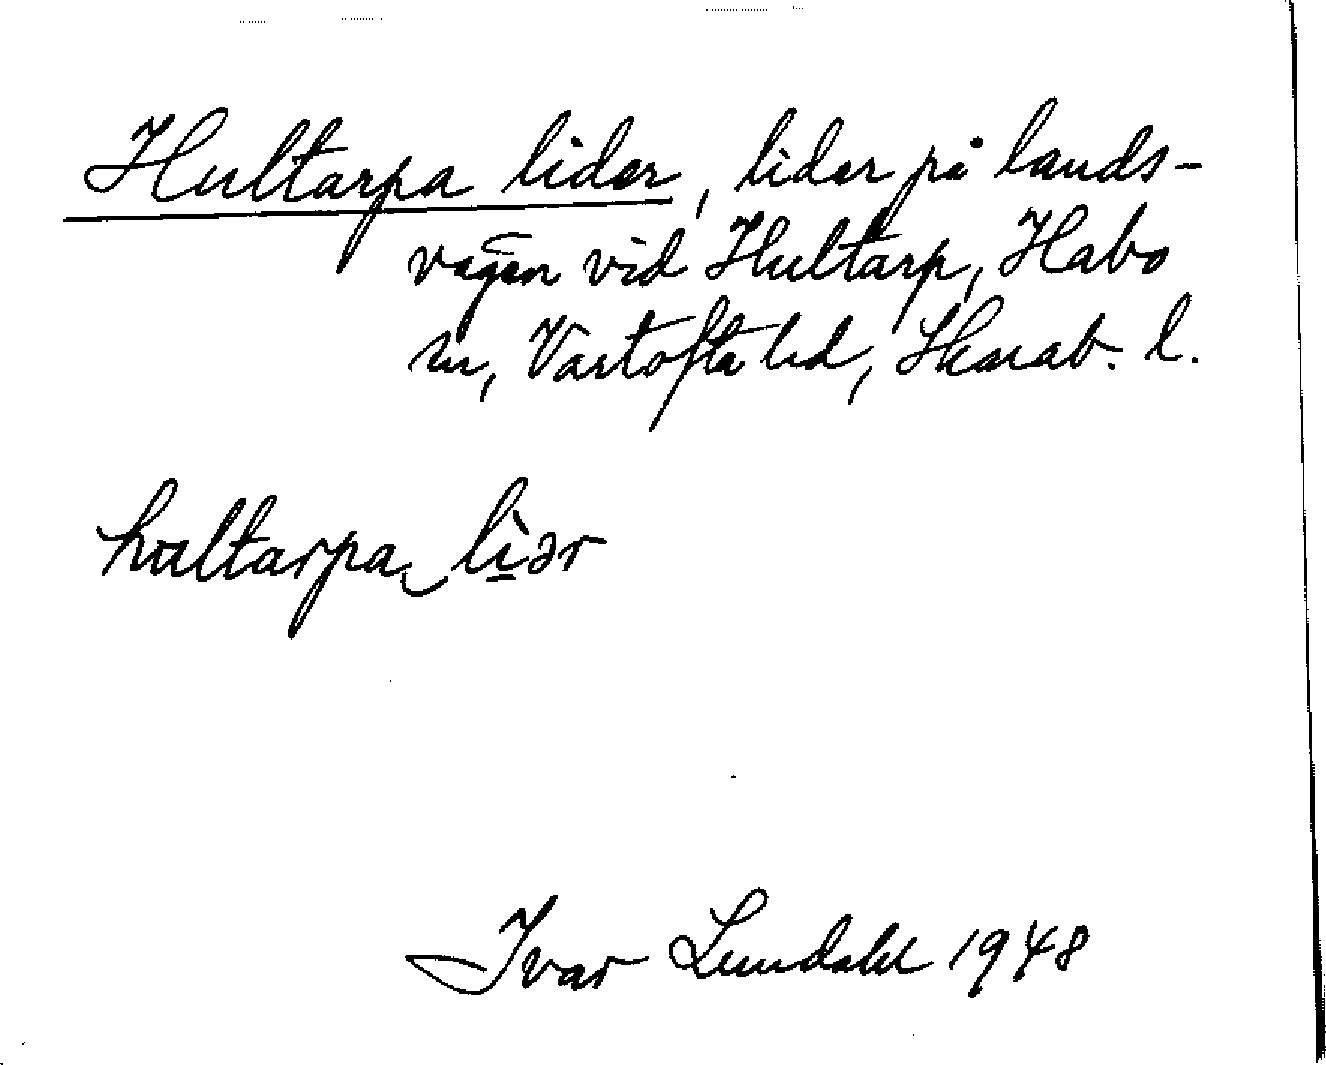 Hultarpa lider, lider på lands-
vägen vid Hultarp, Habo
sn, Vartofta hd, Skarab. l.
hultarpa‿lìər
Ivar Lundahl 1948